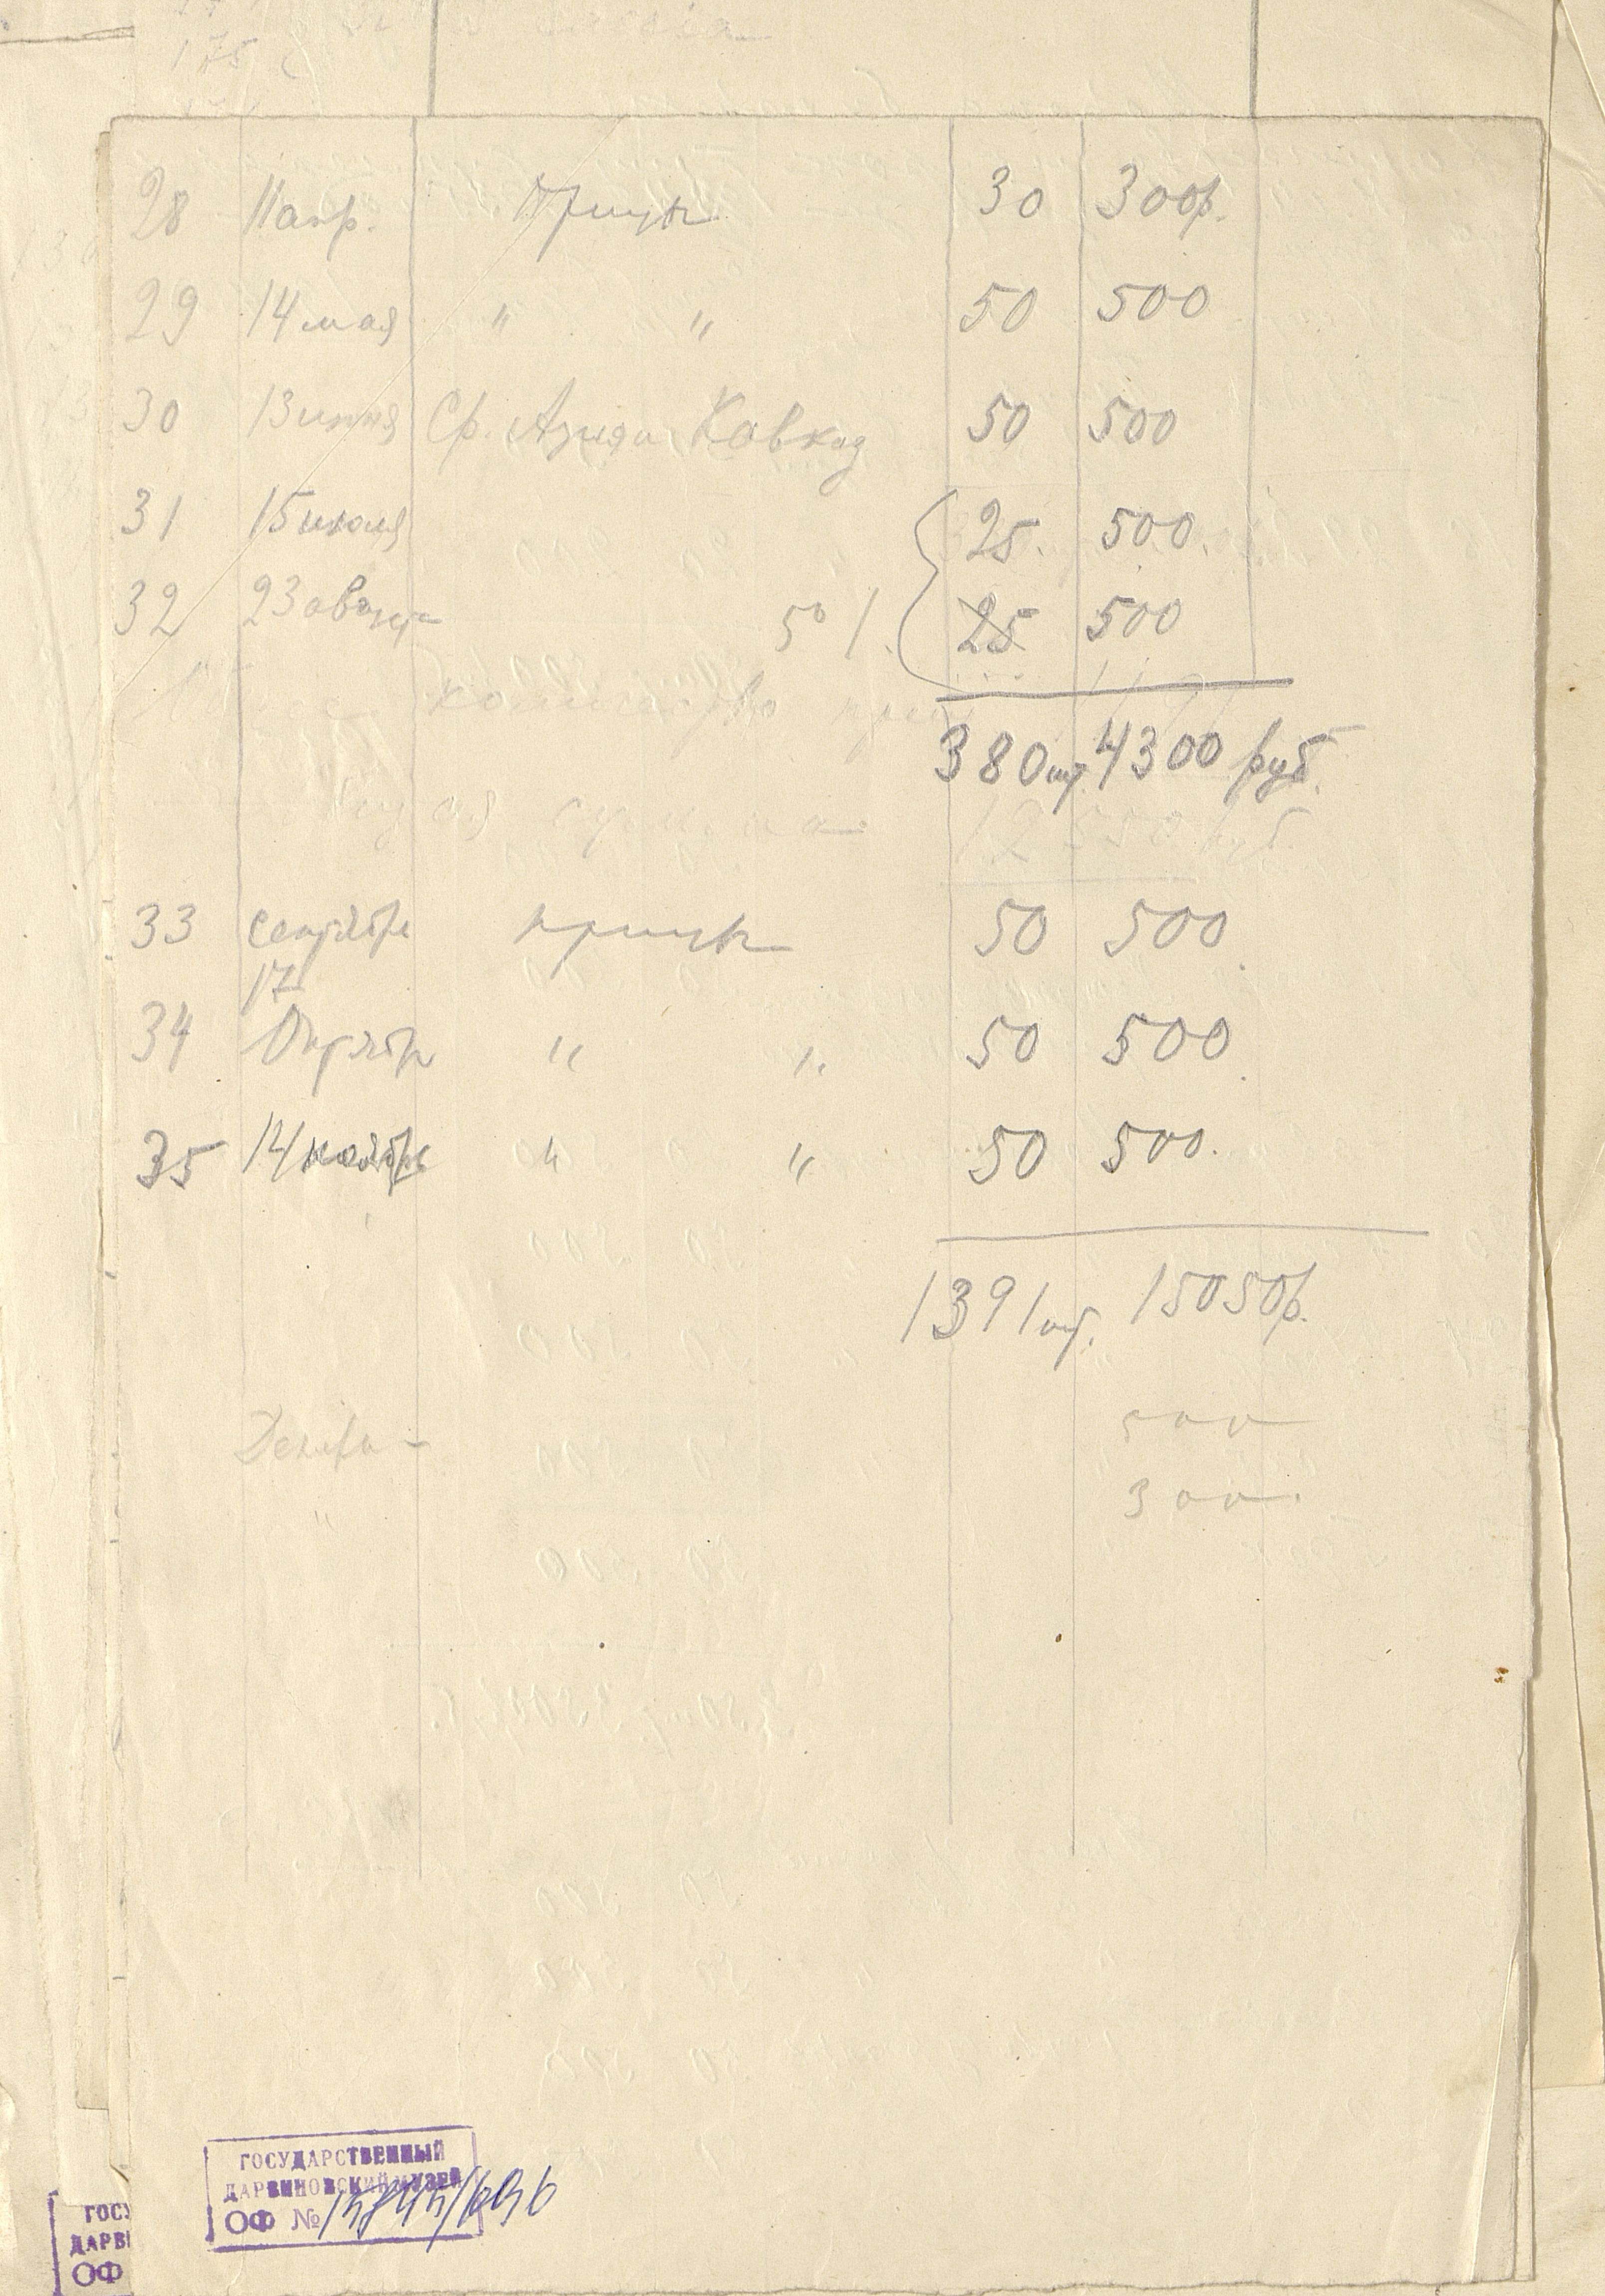 175
28 11 апр. Птицы 30 300р.
29 14 мая " " 50 500
30 13 июня Ср. Азия и Кавказ 50 500
31 15 июля 25. 500.
32 23 август 50 25 500
количество
380 шт. 4300 руб.
сумма 12550 руб.
33 сентябрь птицы 50 500
17
34 Октябрь " " 50 500
35 14 ноябрь " " 50 500.
1391 шт. 15050р.
500
Декабрь -
300
"
ГОСУДАРСТВЕННЫЙ
ДАРВИНОВСКИЙ МУЗЕЙ
ОФ №
ГОСУ
ДАРВИ
ОФ